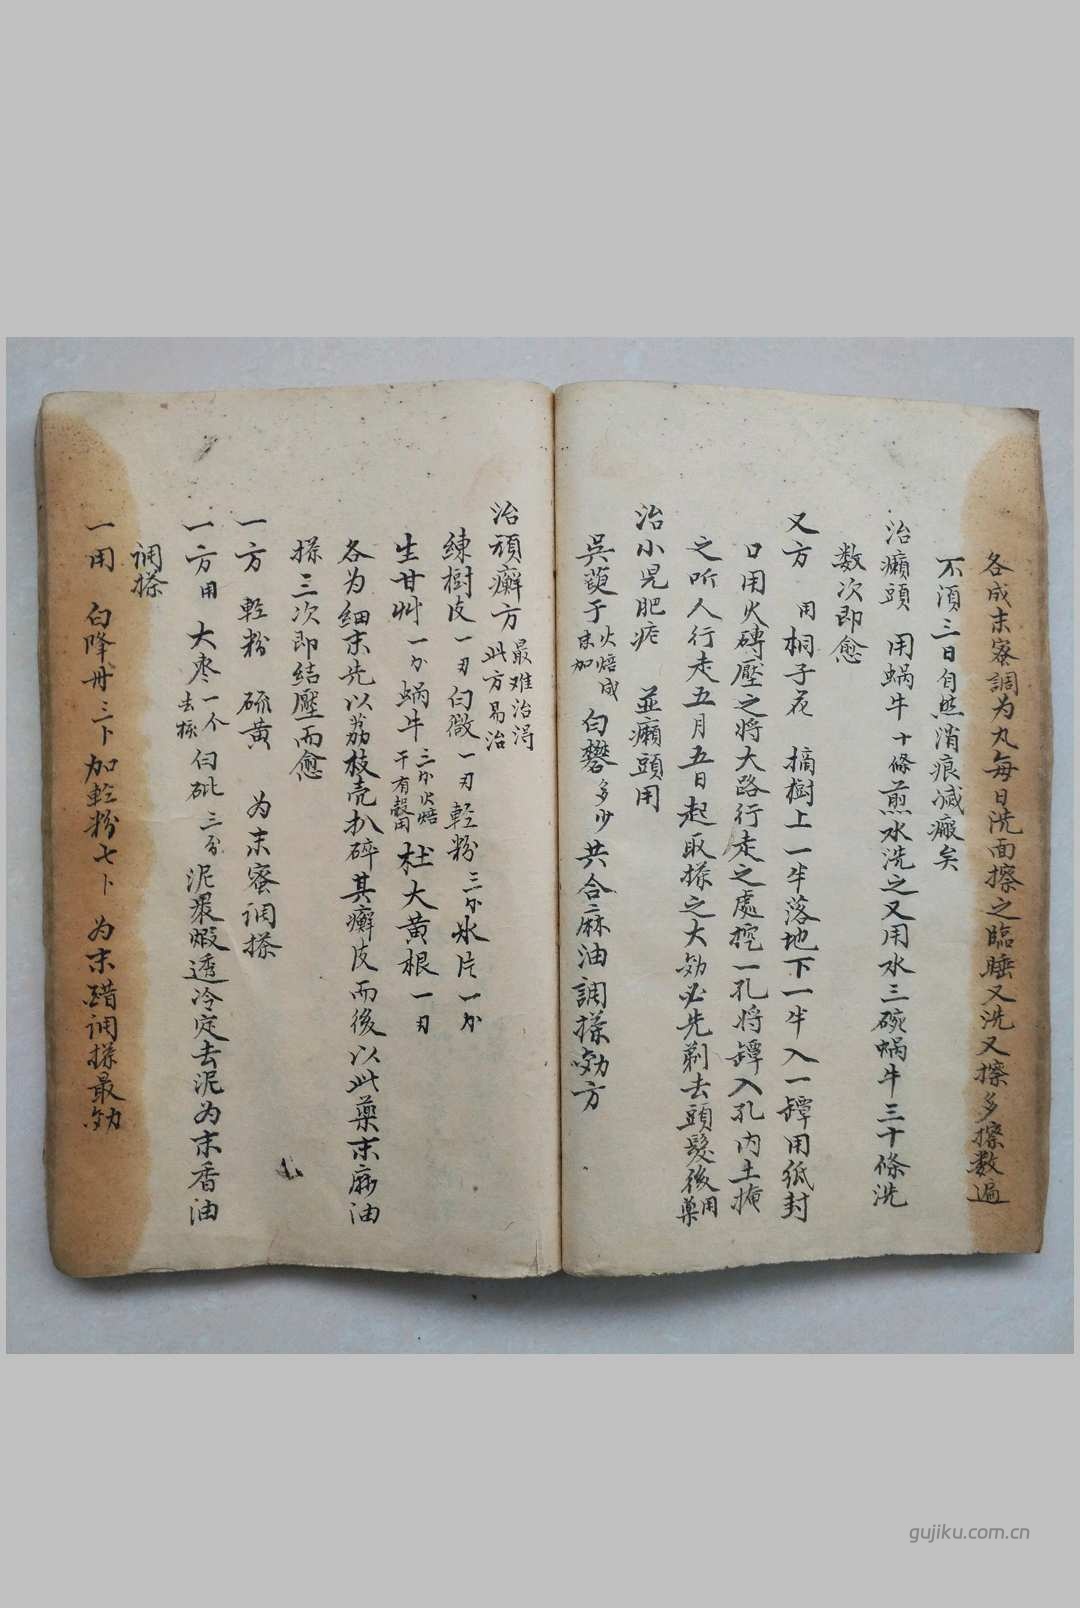 各成末蜜調为丸每日洗面擦之臨睡又洗又擦多擦数遍
不須三日自然消痕滅癜矣
治癩頭 用蜗牛十條煎水洗之又用水三碗蜗牛三十條洗
数次即愈
又方 用桐子花 摘樹上一半落地下一半入一罈用紙封
口用火磚壓之将大路行走之處挖一孔将罈入孔内土掩
之听人行走五月五日起取搽之大効必先剃去頭髮後用藥
治小児肥疮 並癩頭用
吳萸子火焙成末加白礬多少共合麻油調搽効方
治頑癬方最难治得此方易治
練樹皮一刃白微一刃輕粉三分氷片一分
生甘艸一分蜗牛三分火焙干有殼用杜大黄根一刃
各为细末先以荔枝壳扒碎其癬皮而後以此藥末麻油
搽三次即结壓而愈
一方 輕粉 硫黄 为末蜜调搽
一方用 大枣一个去核白砒三分泥裹煅透冷定去泥为末香油
调搽
一用 白降丹三卜加輕粉七卜为末醋调搽最効
gujiku.com.cn